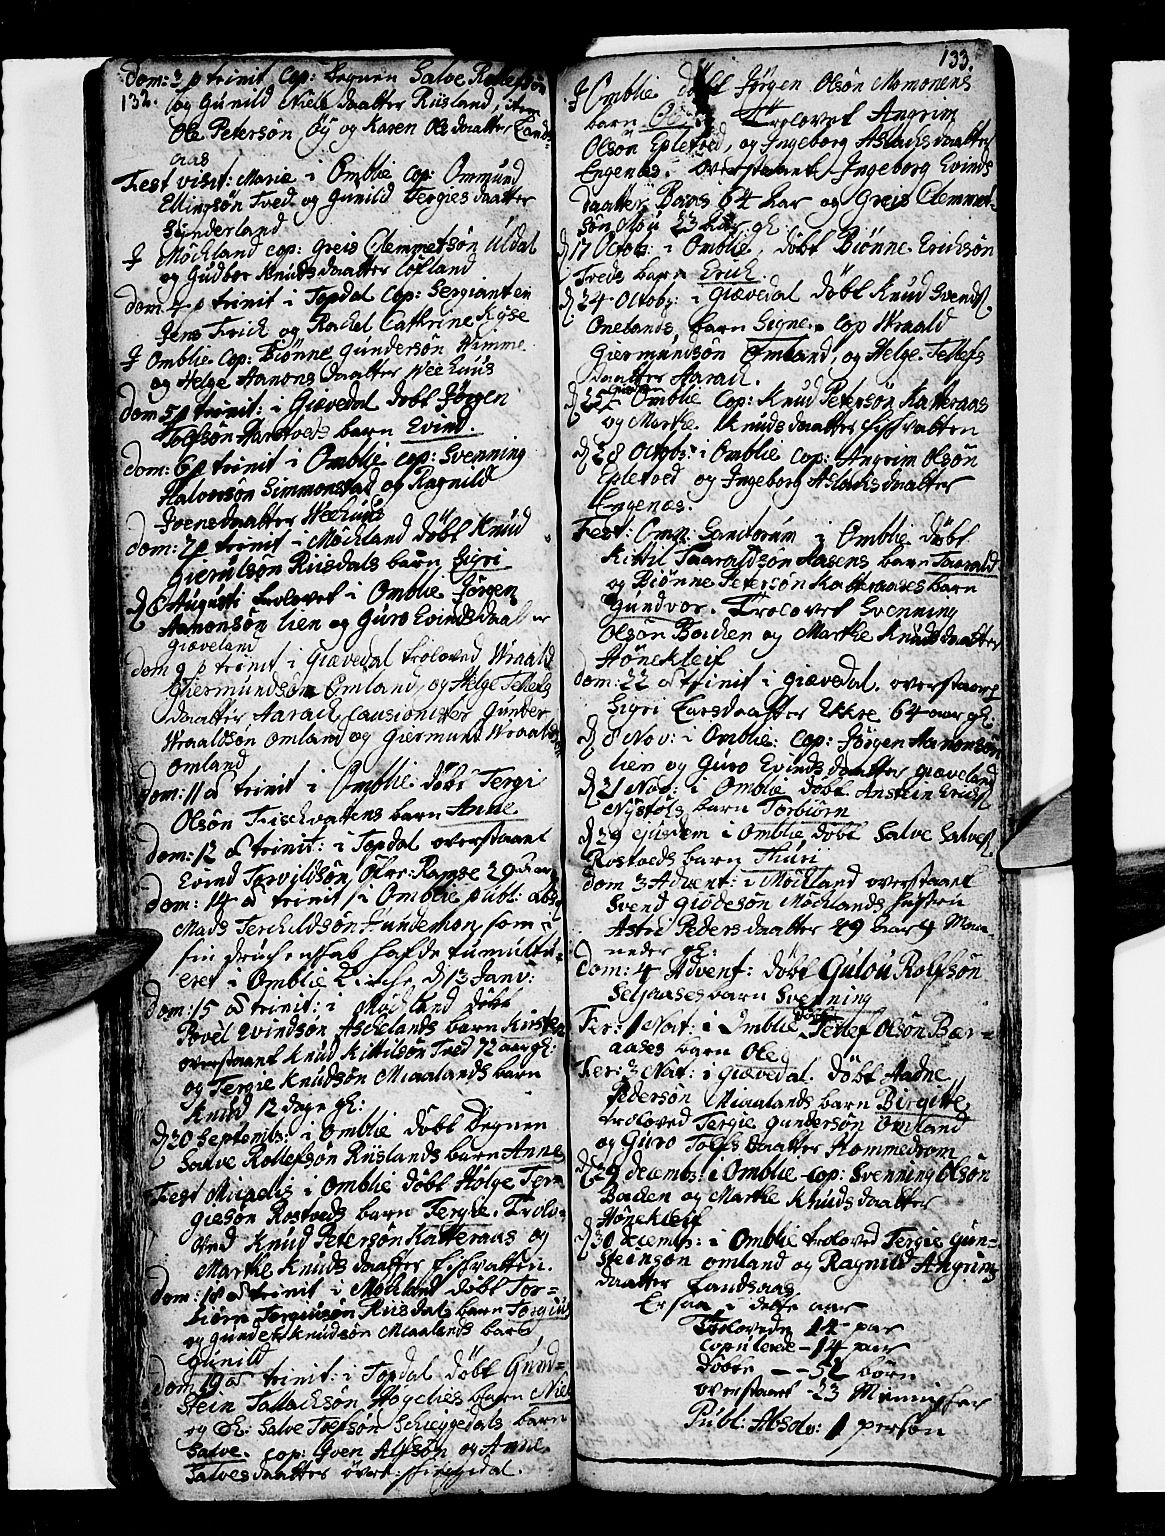 dom: 3 p trinit cop: Degnen Salve Rollefsøn
132. og Gunild Niels daatter Riisland, item
Ole Petersøn Øy og Karen Ole daatter Lands-
aas
Fest visit: Mariæ i Omblie cop: Ommund
Ellingsøn Tved og Gunild Tergies daatter
Sunderland
☿ Møckland cop: Greis Clemmetsøn Uldal
og Gudbor Knudsdaatter Lofland
dom 4 p trinit i Topdal cop: Sergianten
Jens Frich og Rachel Cathrine Kyse
☿ Omblie cop: Biønne Gundersøn Himme
og Helge Aanons daatter Veehuus
dom: 5 p trinit: i Giævedal døbt Jørgen
Tolfsøn Harstveds barn Evind.
dom: 6 p trinit i Omblie cop: Svenning
Halvorsøn Simmonstad og Ragnild
Jvensdaatter Veehuus
dom: 7 p trinit i Møckland døbt Knud
Gierulsøn Riisdals barn Sigri
d 8 Augusti trolovet i Omblie Jørgen
Aanonsøn Lien og Guro Evinds daatter
Giæveland
dom 9 p trinit i Giævedal troloved Wraald
Giermundsøn Omland, og Helge Tellefs
daatter Aarach Causionister Gunder
Wraaldsøn Omland og Giermund Wraaldsøn
Omland
dom: 11 p trinit i Omblie døbt Tergi
Olsøn Fischvattens barn Anne
dom: 12 p trinit: i Topdal overstaaet
Evind Torvildsøn Øvre: Ramse 29 aar
dom: 14 p trinit i Omblie publ: abs:
Mads Terchildsøn Hundemon, som i
sin druchenskab hafde tumultu-
eret i Omblie Kirche d 13 Janv:
dom: 15 p trinit: i Møckland døbt
Povel Evindsøn Aschelands barn Kirsten
overstaaet Knud Kittilsøn Tved 72 aar gl:
og Tergie Knudsøn Miaalands barn
Knud 12 dage gl:
d 20 Septembr: i Omblie døbt Degnen
Salve Rollefsøn Riislands barn Anne
Fest Michaelis i Omblie døbt Holge Ter-
giesøn Rostveds barn Tergie. Trolo-
ved Knud Petersøn Katteraas og
Marthe Knuds daatter Fischvatten.
dom: 18 p trinit i Møckland døbt Tor-
biørn Torgiusøn Riisdals barn Torgius
og Gunder Knudsøn Miaalands barn
Gunild
dom 19 p trinit: i Topdal døbt Gund-
stein Tallachsøn Høgelies barn Niels
og Salve Tolfsøn Scheggedals barn
Salve. cop: Gven Alfsøn og Anne
Salvesdaatter øvre Scheggedal.
133.
☿ Omblie døbt Jørgen Olsøn Momonens
barn Ole. Trolovet Angrim
Olsøn Epletved, og Ingeborg Aslachsdaatter
Engenæs. overstaaet Ingeborg Evinds
daatter Baas 64 aar og Greis Clemmet-
søn Mou 23 aar gl:
d 17 Octob: i Omblie døbt Biønne Erichsøn
Treds barn Erich.
d 24 Octobr: i Giævedal døbt Knud Svends.
Onelands barn Signe. cop Wraald
Giermundsøn Omland, og Helge Tellefs
daatter Aarach.
d 25 Omblie cop: Knud Petersøn Katteraas
og Marthe Knudsdaatter Fischvatten
d 28 Octobr: i Omblie cop: Angrim Olsøn
Epletved og Ingeborg Aslachs daatter
Engenæs.
Fest: Omn: Sanctorum i Omblie døbt
Kittil Taaraldsøn Aasens barn Taarald
og Biønne Petersøn Katteraases barn
Gundvor. Trolovet Svenning
Olsøn Bachen og Marthe Knudsdaatter
Hønekleif
dom: 22 p trinit i Giævedal. overstaaet
Sigri Larsdaatter Ekre 64 aar gl:
d 8 Nov: i Omblie: cop: Jørgen Aanonsøn
Lien og Guro Evinds daatter Giæveland
d 21 Nov: i Omblie døbt Anstein Erichs.
Nystøls barn Torbiørn
d 29 ejusdem i Omblie døbt Salve Salves.
Rostveds barn Thuri
dom 3 Advent: i Møckland overstaaet
Svend Giødesøn Møcklands hustru
Astri Peders daatter 49 aar 4 Maa-
neder gl:
dom: 4 Advent: døbt Gulou Rolfsøn
Seljaases barn Svenning
Fer: 1 Nat: i Omblie døbt Tellef Olsøn Bær-
aases barn Ole
Fer: 3 Nat: i Giævedal. døbt Aadne
Pedersøn Miaalands barn Birgitte
troloved Tergie Gundersøn Omland
og Guro Tolfs daatter Hommedrom
d 29 decemb: i Omblie cop: Svenning Olsøn
Bachen og Marthe Knuds daatter
Hønekleif
d 30 decemb: i Omblie troloved Tergie Gun-
steinsøn Omland og Ragnild Angrims
daatter Landsaas
Er saa i dette aar
Trolovede 14 par
Copulerede – 14 par
Døbte – – 52 børn
overstaaet – 23 Mennisker
Publ: Absolv: 1 person